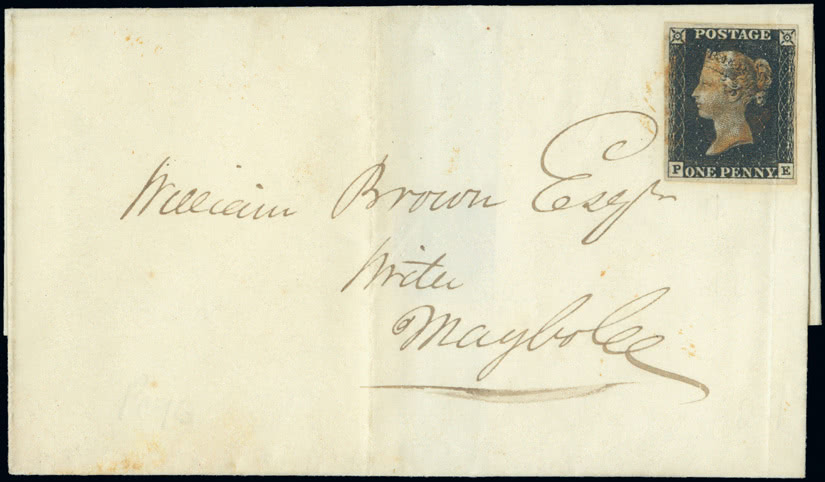 POSTAGE
P ONE PENNY E
William Brown Esqr
Writer
Maybole